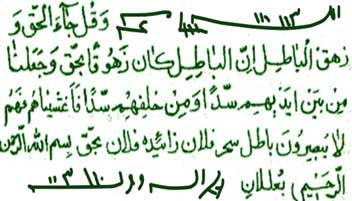 وَقُلْ جَاءَ الْحَقُّ وَ
زَهَقَ الْبَاطِلُ اِنَّ الْبَاطِلَ كَانَ زَهُوقًا بحق وَجَعَلْنَا
مِنْ بَيْنِ اَيْدِيهِمْ سَدًّا وَمِنْ خَلْفِهِمْ سَدًّا فَاَغْشَيْنَاهُمْ فَهُمْ
لَا يُبْصِرُونَ باطل سحر فلان زائيده فلان بحق بسم الله الرَّحْمٰنِ
الرَّحِيْمِ